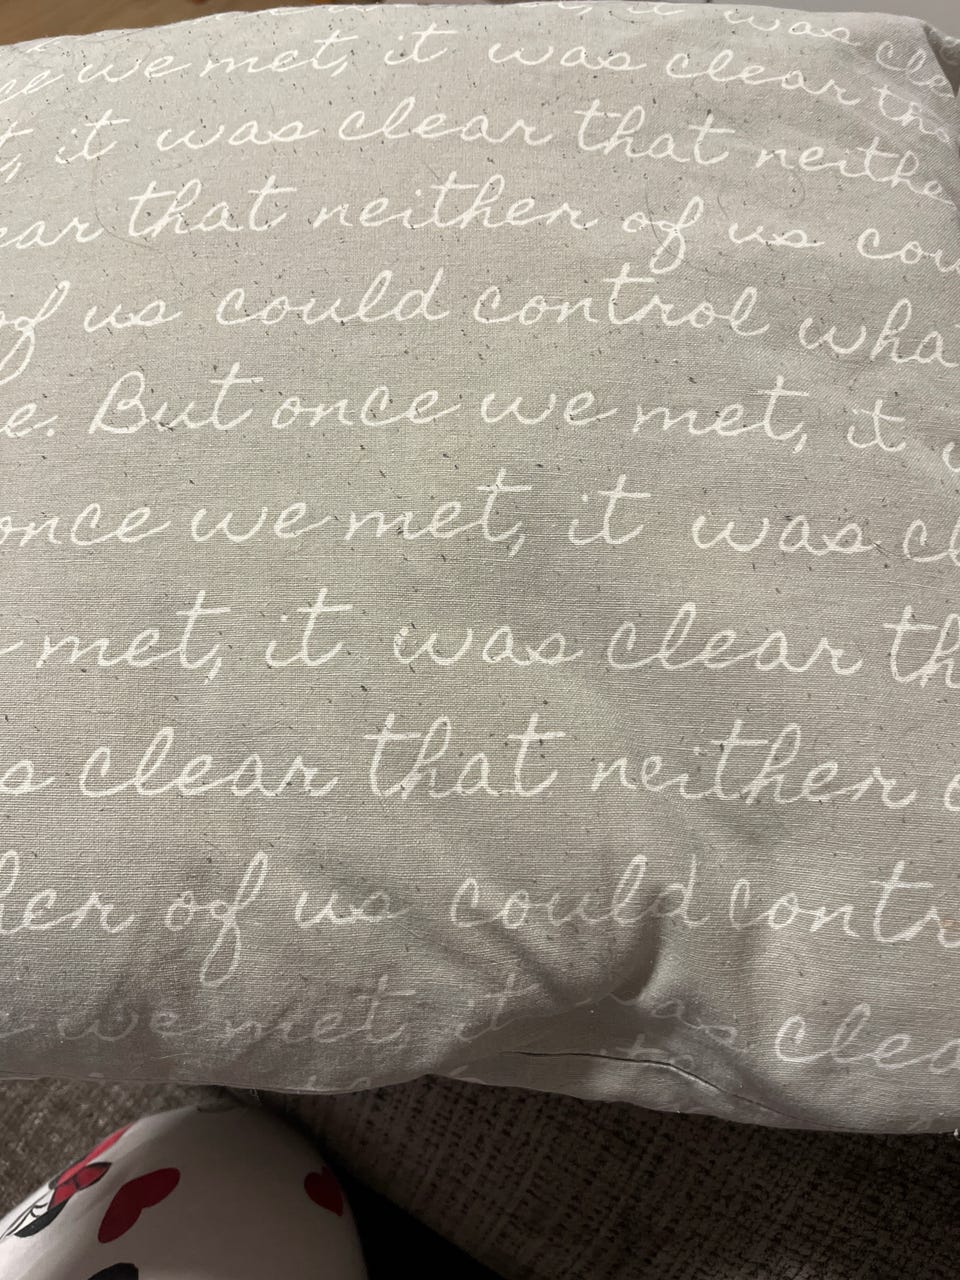 it was cle
ce we met, it was clear tha
t, it was clear that neithe
ear that neither of us cou
of us could control wha
e. But once we met, it w
once we met, it was cl
met, it was clear th
s clear that neither o
her of us could contr
we met, it was clea